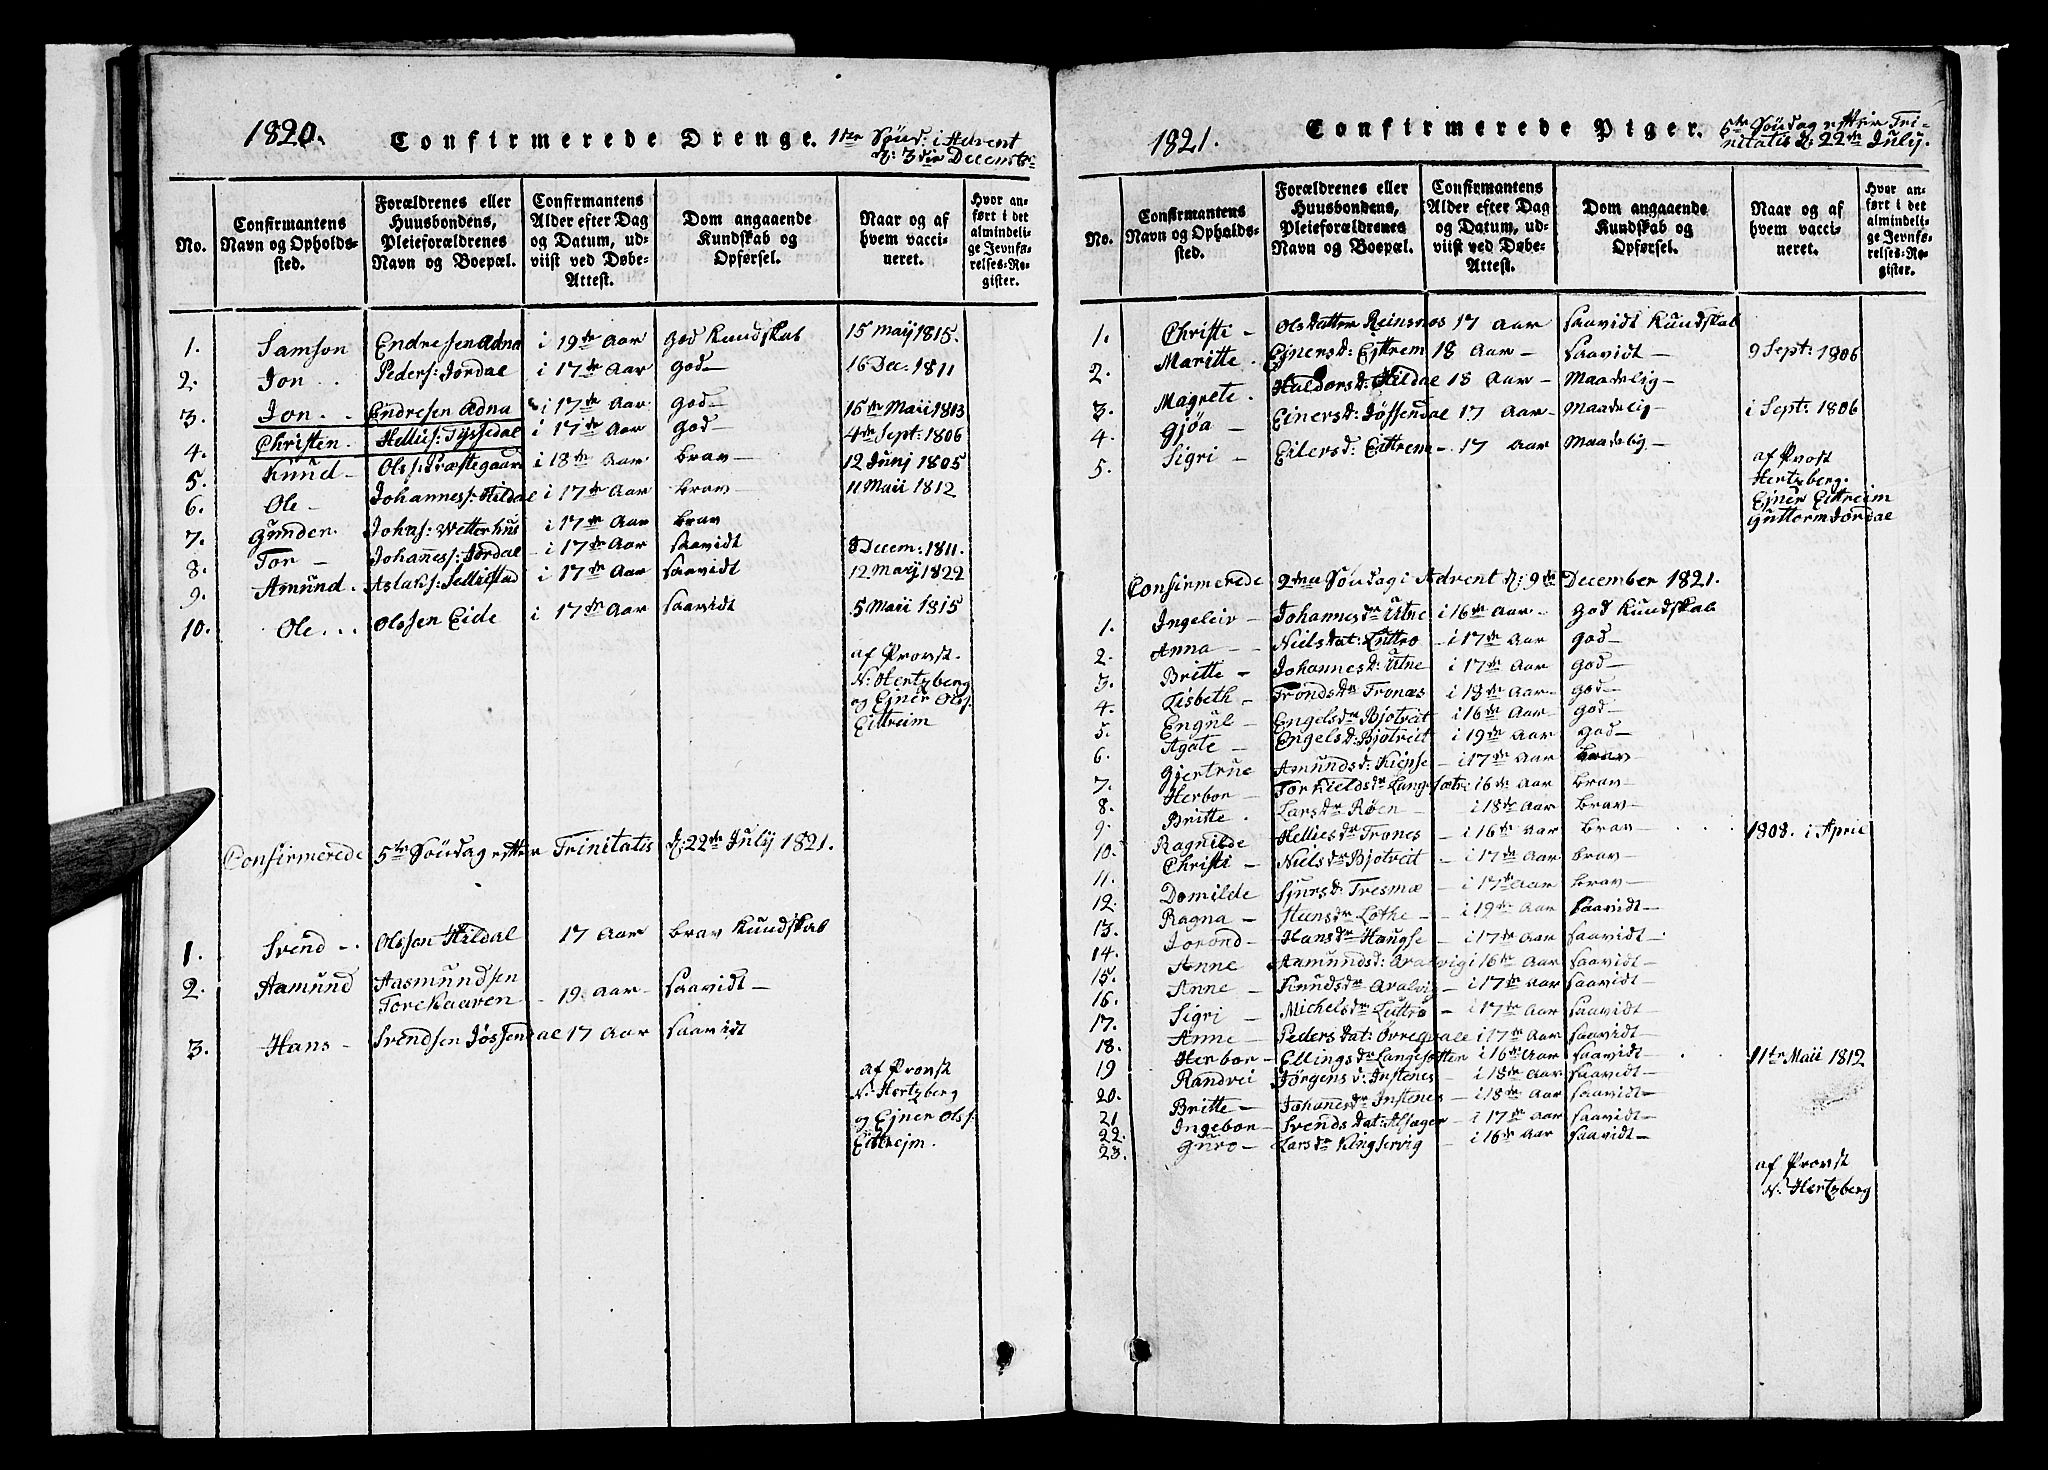 1820. Confirmerede Drenge. 1ter Sönd: i Advent
d: 3die Decembr:
No.
Confirmantens
Navn og Opholds-
sted.
Forældrenes eller
Huusbondens,
Pleieforældrenes
Navn og Boepæl.
Confirmantens
Alder efter Dag
og Datum, ud-
viist ved Døbe-
Attest.
Dom angaaende
Kundskab og
Opførsel.
Naar og af
hvem vacci-
neret.
Hvor an-
ført i det
almindeli-
ge Jevnfø-
relses-Re-
gister.
1. Samson Endresen Adna i 19de Aar god Kundskab 15 Maij 1815.
2. Jon . . Peders: Jordal i 17de Aar god— 16 Dec. 1811
3. Jon. . . Endresen Adna i 17de Aar god— 15de Maii 1813
4. Christen. Hellies: Tyssedal i 17de Aar god— 4de Sept: 1806
5. Knud — Olss: Præstegaard i 18de Aar brav— 12 Junj 1805
6. Ole — Johanness: Hildal i 17de Aar brav— 11 Maii 1812
7. Gunder. Johns: Wetterhus i 17de Aar brav
8. Tor — Johanness: Jordal i 17de Aar saavidt 8 Decem: 1811.
9. Amund. Aslaks: Selliestad i 17de Aar saavidt 12 Marj 1822
10. Ole. . . Olssen Eide i 17de Aar saavidt 5 Maii 1815
af Provst.
N: Hertzberg
og Ejner Olss:
Eittreim
Confirmerede 5te Söndag efter Trinitatis d: 22de July 1821.
1. Svend -. Olssen Hildal 17 Aar brav Kundskab
2. Aamund Aasmundsen
Torekaaven - 19 Aar— saavidt —
3. Hans — Svendsen Jøssendal 17 Aar saavidt
af Provst
N. Hertzberg
og Ejner Olss:
Eittrejm.
1821. Confirmerede Piger. 5te Söndag efter Tri-
nitatis d: 22de July.
No.
Confirmantens
Navn og Opholds-
sted.
Forældrenes eller
Huusbondens,
Pleieforældrenes
Navn og Boepæl.
Confirmantens
Alder efter Dag
og Datum, ud-
viist ved Døbe-
Attest.
Dom angaaende
Kundskab og
Opførsel.
Naar og af
hvem vacci-
neret.
Hvor an-
ført i det
almindeli-
ge Jevnfø-
relses-Re-
gister.
1. Christi — Olsdatter Reinsnos 17 Aar saavidt Kundskab
2. Maritte. Ejnersd: Eittrem 18 Aar — saavidt — 9 Sept: 1806
3. Magrete. Haldorsd: Hildal 18 Aar — Maadelig—
4. Gjøa — Einersd: Jössendal 17 Aar— Maadelig— i Sept: 1806
5. Sigri — Eilersd: Eittrem — 17 Aar Maadelig—
af Provst
Hertzberg.
Ejner Eittreim
Guttorm Jordal
Confirmerede 2den Söndag i Advent d: 9de December 1821.
1. Ingeleiv — Johannesdr Utne i 16de Aar— god Kundskab
2. Anna — Nielsdat: Luttro — i 17de Aar god—
3. Britte — Johannesd: Utne i 17de Aar god—
4. Lisbeth — Trondsdr Tronæs i 18de Aar— god—
5. Engul — Engelsdr Bjotveit i 16de Aar— god—
6. Agate — Engelsd: Bjotveit i 19de Aar god—
7. Gjertrue Amundsd: Kiepse — i 17de Aar brav—
8. Herbor — Torkieldsdr Langesæte i 16de Aar brav—
9. Britte . Larsdr Røen — i 18de Aar brav—
10. Ragnilde Helliesdr Trones i 16de Aar brav— 1808. i April
11. Christi — Nielsdr Bjotveit — i 17de Aar brav—
12. Domilde Sjursd: Tresmæ — i 17de Aar brav—
13. Ragna — Steensdr Lothe — i 19de Aar saavidt—
14. Jorond — Hansdr Haugse — i 17de Aar saavidt—
15. Anne Aamundsd: Aralvig i 16de Aar saavidt—
16. Anne — Knudsdr Aralvig — i 17de Aar saavidt—
17. Sigri — Michelsdr Luttro — i 17de Aar saavidt—
18. Anne — Pedersdat: Ovregdale i 17de Aar saavidt—
19 Herbor — Ellingsdr Langesætter i 16de Aar saavidt— 11te Maii 1812
20. Randvei Jörgensd: Instenes — i 18de Aar saavidt—
21 Britte — Johanesdr Instenes — i 18de Aar saavidt—
22. Ingebor — Svendsdat: Alsager — i 17de Aar saavidt—
23. Guro — Larsdr Kingservig — i 16de Aar saavidt—
af Provst
N. Hertzberg